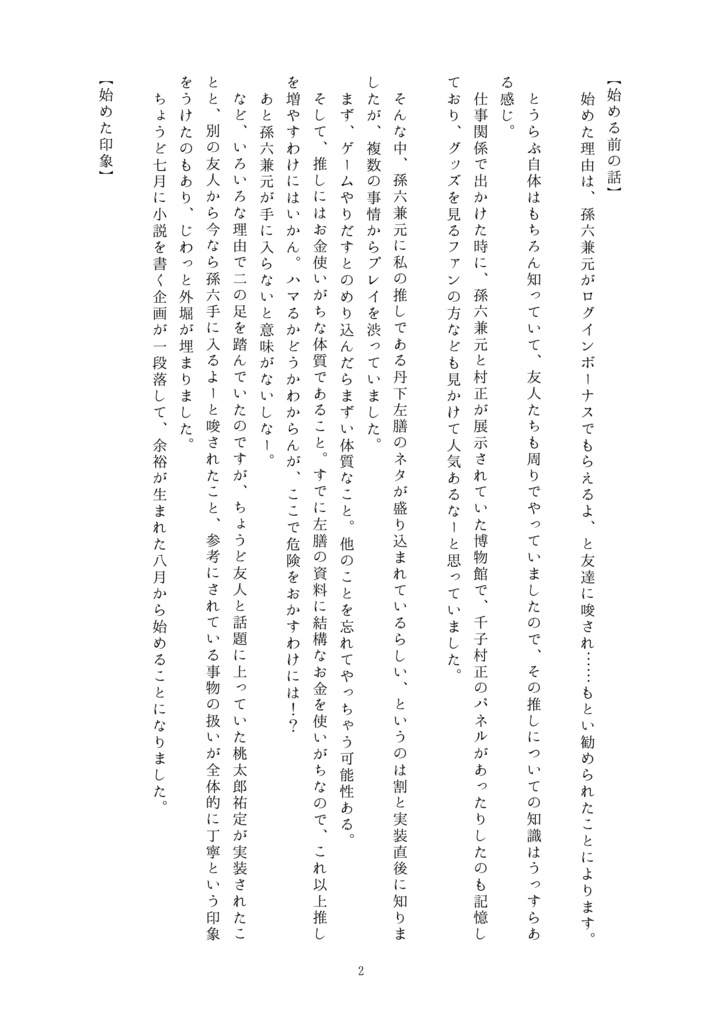 【始める前の話】
始めた理由は、孫六兼元がログインボーナスでもらえるよ、と友達に唆され……もとい勧められたことによります。
とうらぶ自体はもちろん知っていて、友人たちも周りでやっていましたので、その推しについての知識はうっすらあ
る感じ。
仕事関係で出かけた時に、孫六兼元と村正が展示されていた博物館で、千子村正のパネルがあったりしたのも記憶し
ており、グッズを見るファンの方なども見かけて人気あるなーと思っていました。
そんな中、孫六兼元に私の推しである丹下左膳のネタが盛り込まれているらしい、というのは割と実装直後に知りま
したが、複数の事情からプレイを渋っていました。
まず、ゲームやりだすとのめり込んだらまずい体質なこと。他のことを忘れてやっちゃう可能性ある。
そして、推しにはお金使いがちな体質であること。すでに左膳の資料に結構なお金を使いがちなので、これ以上推し
を増やすわけにはいかん。ハマるかどうかわからんが、ここで危険をおかすわけには！？
あと孫六兼元が手に入らないと意味がないしなー。
など、いろいろな理由で二の足を踏んでいたのですが、ちょうど友人と話題に上っていた桃太郎祐定が実装されたこ
とと、別の友人から今なら孫六手に入るよーと唆されたこと、参考にされている事物の扱いが全体的に丁寧という印象
をうけたのもあり、じわっと外堀が埋まりました。
ちょうど七月に小説を書く企画が一段落して、余裕が生まれた八月から始めることになりました。
【始めた印象】
2